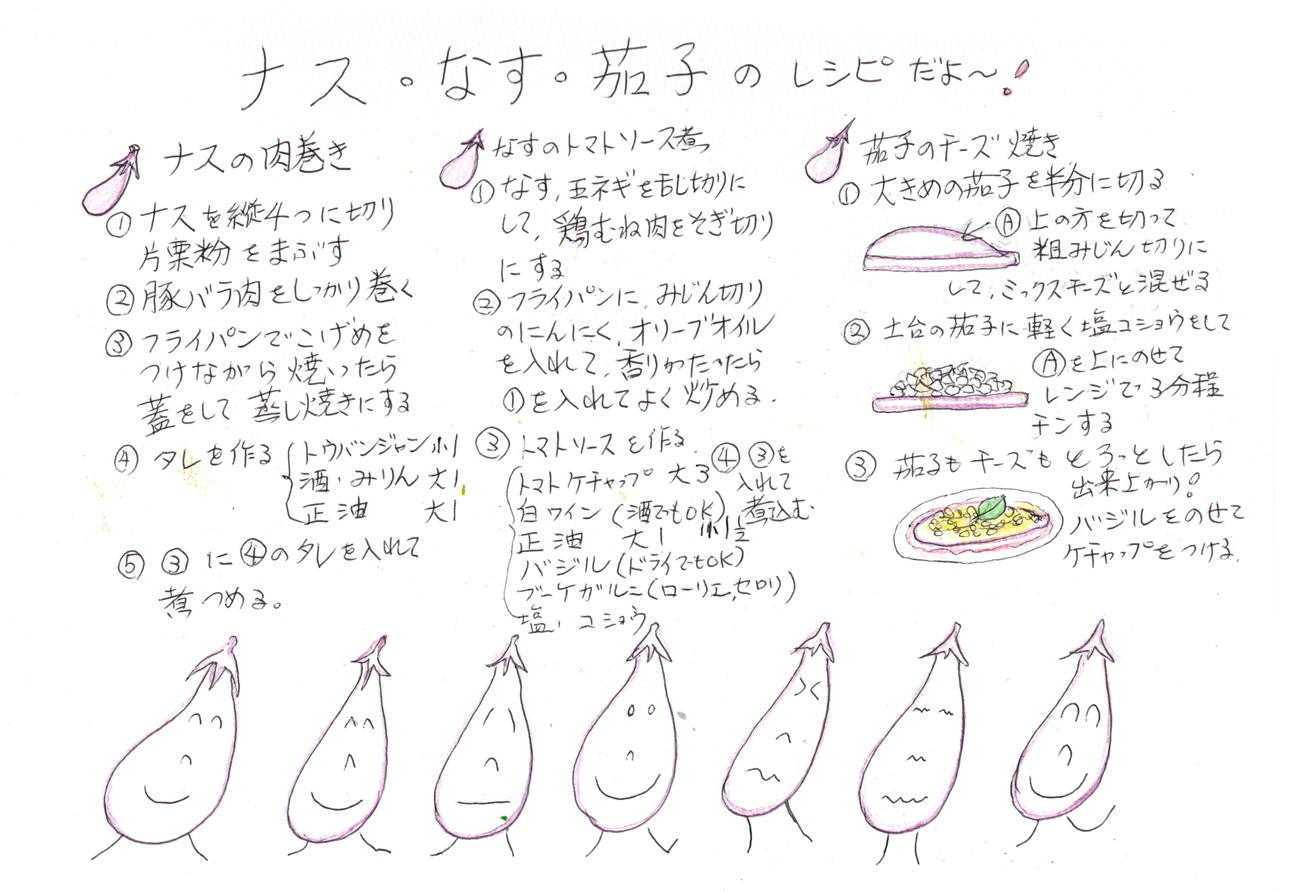 ナス・なす・茄子のレシピだよ〜!
ナスの肉巻き
①ナスを縦4つに切り
片栗粉をまぶす
②豚バラ肉をしっかり巻く
③フライパンでこげめを
つけながら焼いたら
蓋をして蒸し焼きにする
④タレを作る
トウバンジャン小1
酒・みりん 大1
正油 大1
⑤③に④のタレを入れて
煮つめる。
なすのトマトソース煮
①なす,玉ネギを乱切りに
して,鶏むね肉をそぎ切り
にする
②フライパンに,みじん切り
のにんにく,オリーブオイル
を入れて,香りがたったら
①を入れてよく炒める.
③トマトソースを作る
トマトケチャップ 大3
白ワイン(酒でもOK)小1½
正油 大1
バジル(ドライでもOK)
ブーケガルニ(ローリエ,セロリ)
塩,コショウ
④③を
入れて
煮込む
茄子のチーズ焼き
①大きめの茄子を半分に切る
Ⓐ上の方を切って
粗みじん切りに
して,ミックスチーズと混ぜる
②土台の茄子に軽く塩コショウをして
Ⓐを上にのせて
レンジで3分程
チンする
③茄子もチーズもとろっとしたら
出来上がり!
バジルをのせて
ケチャップをつける.